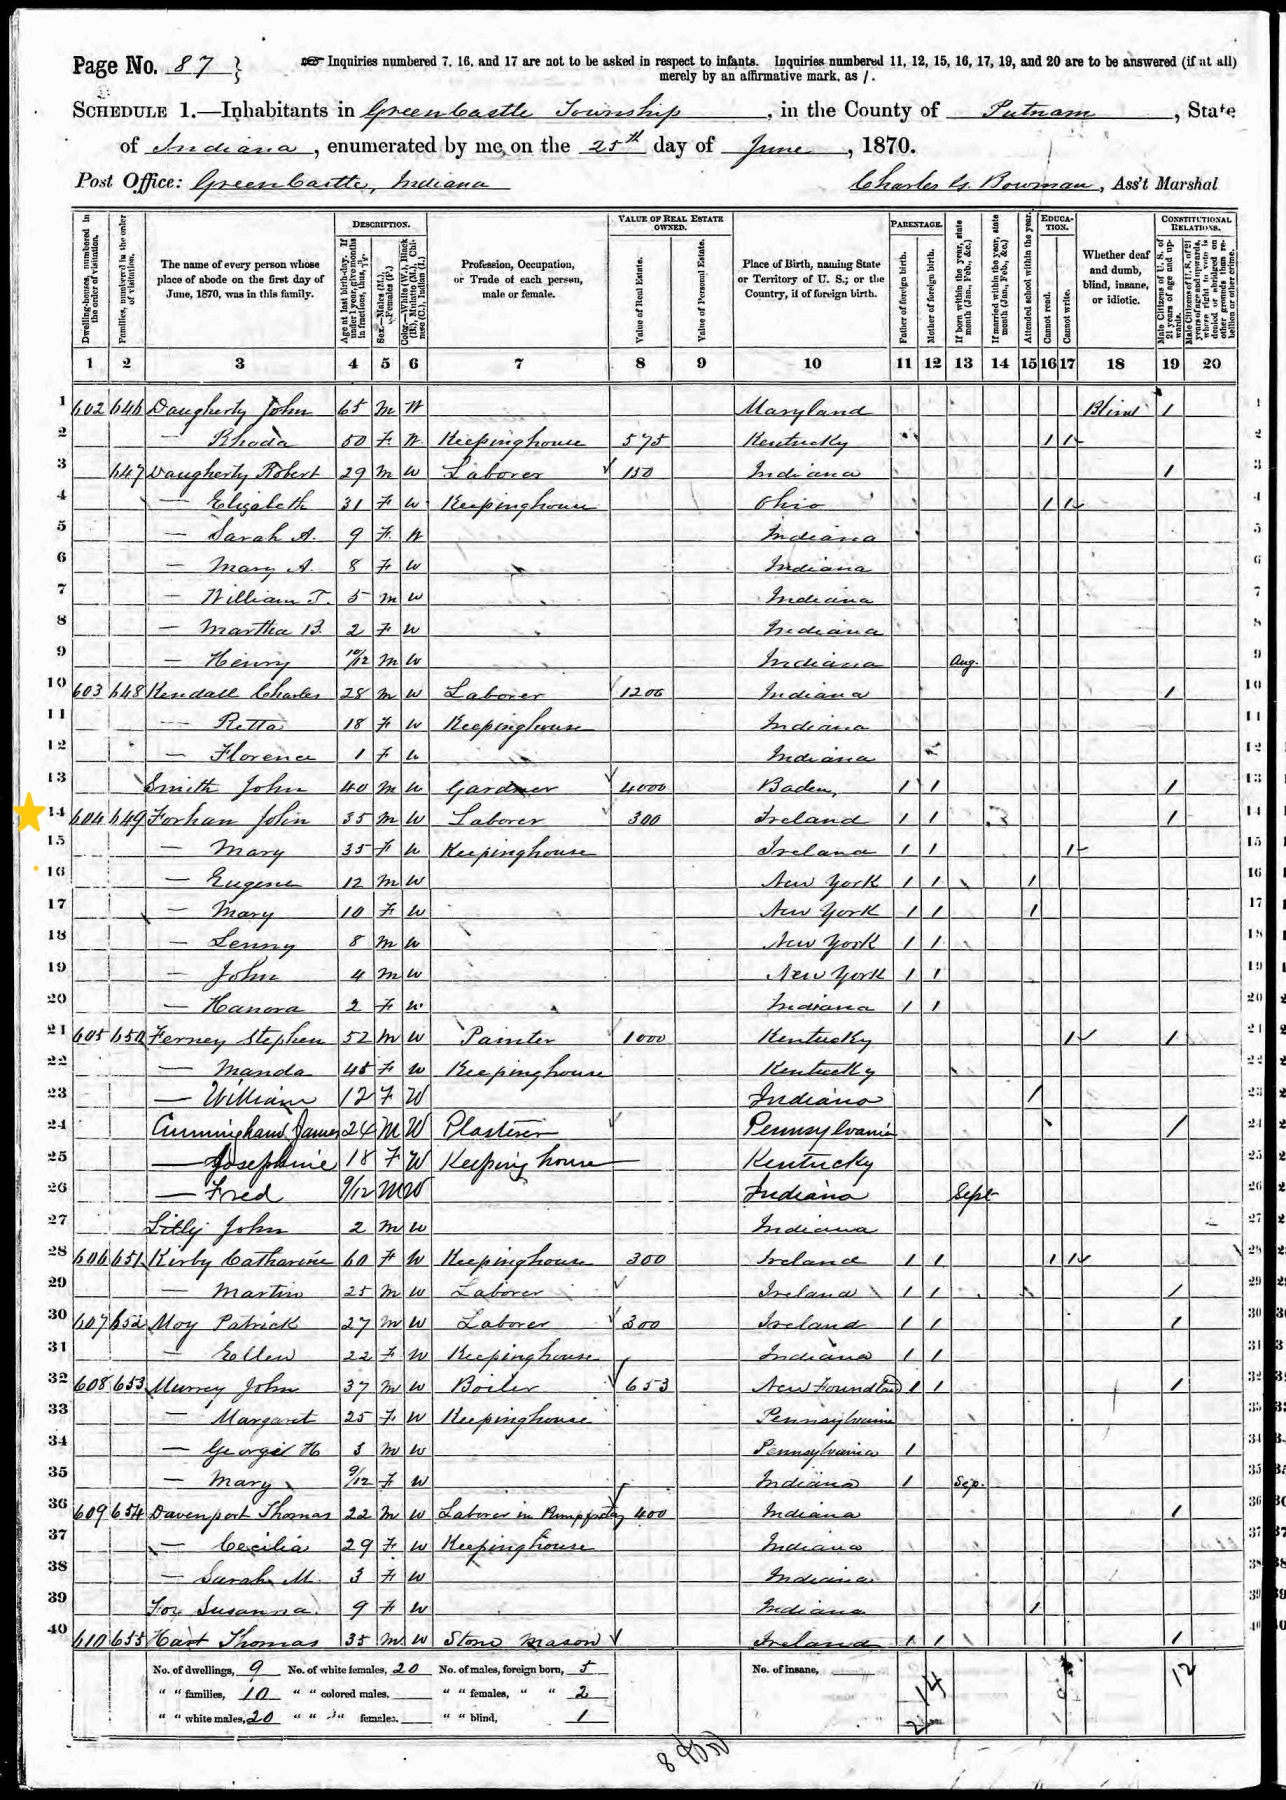 Page No. 87 } Inquiries numbered 7, 16, and 17 are not to be asked in respect to infants. Inquiries numbered 11, 12, 15, 16, 17, 19, and 20 are to be answered (if at all)
merely by an affirmative mark, as /.
SCHEDULE 1.—Inhabitants in GreenCastle Township, in the County of Putnam, State
of Indiana, enumerated by me on the 25th day of June, 1870.
Post Office: GreenCastle, Indiana Charles G. Bowman, Ass't Marshal
Dwelling-houses, numbered in the order of visitation.
Families, numbered in the order of visitation.
The name of every person whose place of abode on the first day of June, 1870, was in this family.
DESCRIPTION.
Age at last birth-day. If under 1 year, give months in fractions, thus, 3/12
Sex.—Males (M.), Females (F.)
Color.—White (W.), Black (B.), Mulatto (M.), Chinese (C.), Indian (I.)
Profession, Occupation, or Trade of each person, male or female.
VALUE OF REAL ESTATE OWNED.
Value of Real Estate.
Value of Personal Estate.
Place of Birth, naming State or Territory of U. S.; or the Country, if of foreign birth.
PARENTAGE.
Father of foreign birth.
Mother of foreign birth.
If born within the year, state month (Jan., Feb., &c.)
If married within the year, state month (Jan., Feb., &c.)
Attended school within the year.
EDUCATION.
Cannot read.
Cannot write.
Whether deaf and dumb, blind, insane, or idiotic.
CONSTITUTIONAL RELATIONS.
Male Citizens of U. S. of 21 years of age and upwards.
Male Citizens of U. S. of 21 years of age and upwards, whose right to vote is denied or abridged on other grounds than rebellion or other crime.
1 2 3 4 5 6 7 8 9 10 11 12 13 14 15 16 17 18 19 20
1 602 646 Daugherty John 65 M W Maryland Blind 1 1
2 — Rhoda 50 F W Keepinghouse 575 Kentucky 1 1 2
3 647 Daugherty Robert 29 M W Laborer 150 Indiana 1 3
4 — Elizabeth 31 F W Keepinghouse Ohio 1 1 4
5 — Sarah A. 9 F W Indiana 5
6 — Mary A. 8 F W Indiana 6
7 — William T. 5 M W Indiana 7
8 — Martha B. 2 F W Indiana 8
9 — Henry 10/12 M W Indiana Aug. 9
10 603 648 Kendall Charles 28 M W Laborer 1200 Indiana 1 10
11 — Retta 18 F W Keepinghouse Indiana 11
12 — Florence 1 F W Indiana 12
13 Smith John 40 M W Gardner 4000 Baden, 1 1 1 13
14 604 649 Forhan John 35 M W Laborer 300 Ireland 1 1 1 14
15 — Mary 35 F W Keepinghouse Ireland 1 1 1 15
16 — Eugene 12 M W New York 1 1 1 16
17 — Mary 10 F W New York 1 1 1 17
18 — Lenny 8 M W New York 1 1 18
19 — John 4 M W New York 1 1 19
20 — Hanora 2 F W Indiana 1 1 20
21 605 650 Ferney Stephen 52 M W Painter 1000 Kentucky 1 1 21
22 — Manda 48 F W Keepinghouse Kentucky 22
23 — William 12 F W Indiana 1 23
24 Cunningham James 24 M W Plasterer Pennsylvania 1 24
25 — Josephine 18 F W Keeping house Kentucky 25
26 — Fred 9/12 M W Indiana Sept 26
27 Lilly John 2 M W Indiana 27
28 606 651 Kirby Catharine 60 F W Keepinghouse 300 Ireland 1 1 1 1 28
29 — Martin 25 M W Laborer Ireland 1 1 1 29
30 607 652 Moy Patrick 27 M W Laborer 300 Ireland 1 1 1 30
31 — Ellen 22 F W Keepinghouse Indiana 1 1 31
32 608 653 Murrey John 37 M W Boiler 653 New Foundland 1 1 1 32
33 — Margaret 25 F W Keepinghouse Pennsylvania 33
34 — George H 3 M W Pennsylvania 1 34
35 — Mary 9/12 F W Indiana 1 Sep. 35
36 609 654 Davenport Thomas 22 M W Laborer in Pumpfactory 400 Indiana 1 36
37 — Cecilia 29 F W Keepinghouse Indiana 37
38 — Sarah M. 3 F W Indiana 38
39 Foy Susanna. 9 F W Indiana 1 39
40 610 655 Hart Thomas 35 M W Stone Mason Ireland 1 1 1 40
No. of dwellings, 9 No. of white females, 20 No. of males, foreign born, 5 No. of insane, 14 12
" " families, 10 " " colored males, " " females, " " 2
" " white males, 20 " " " females, " " blind, 1